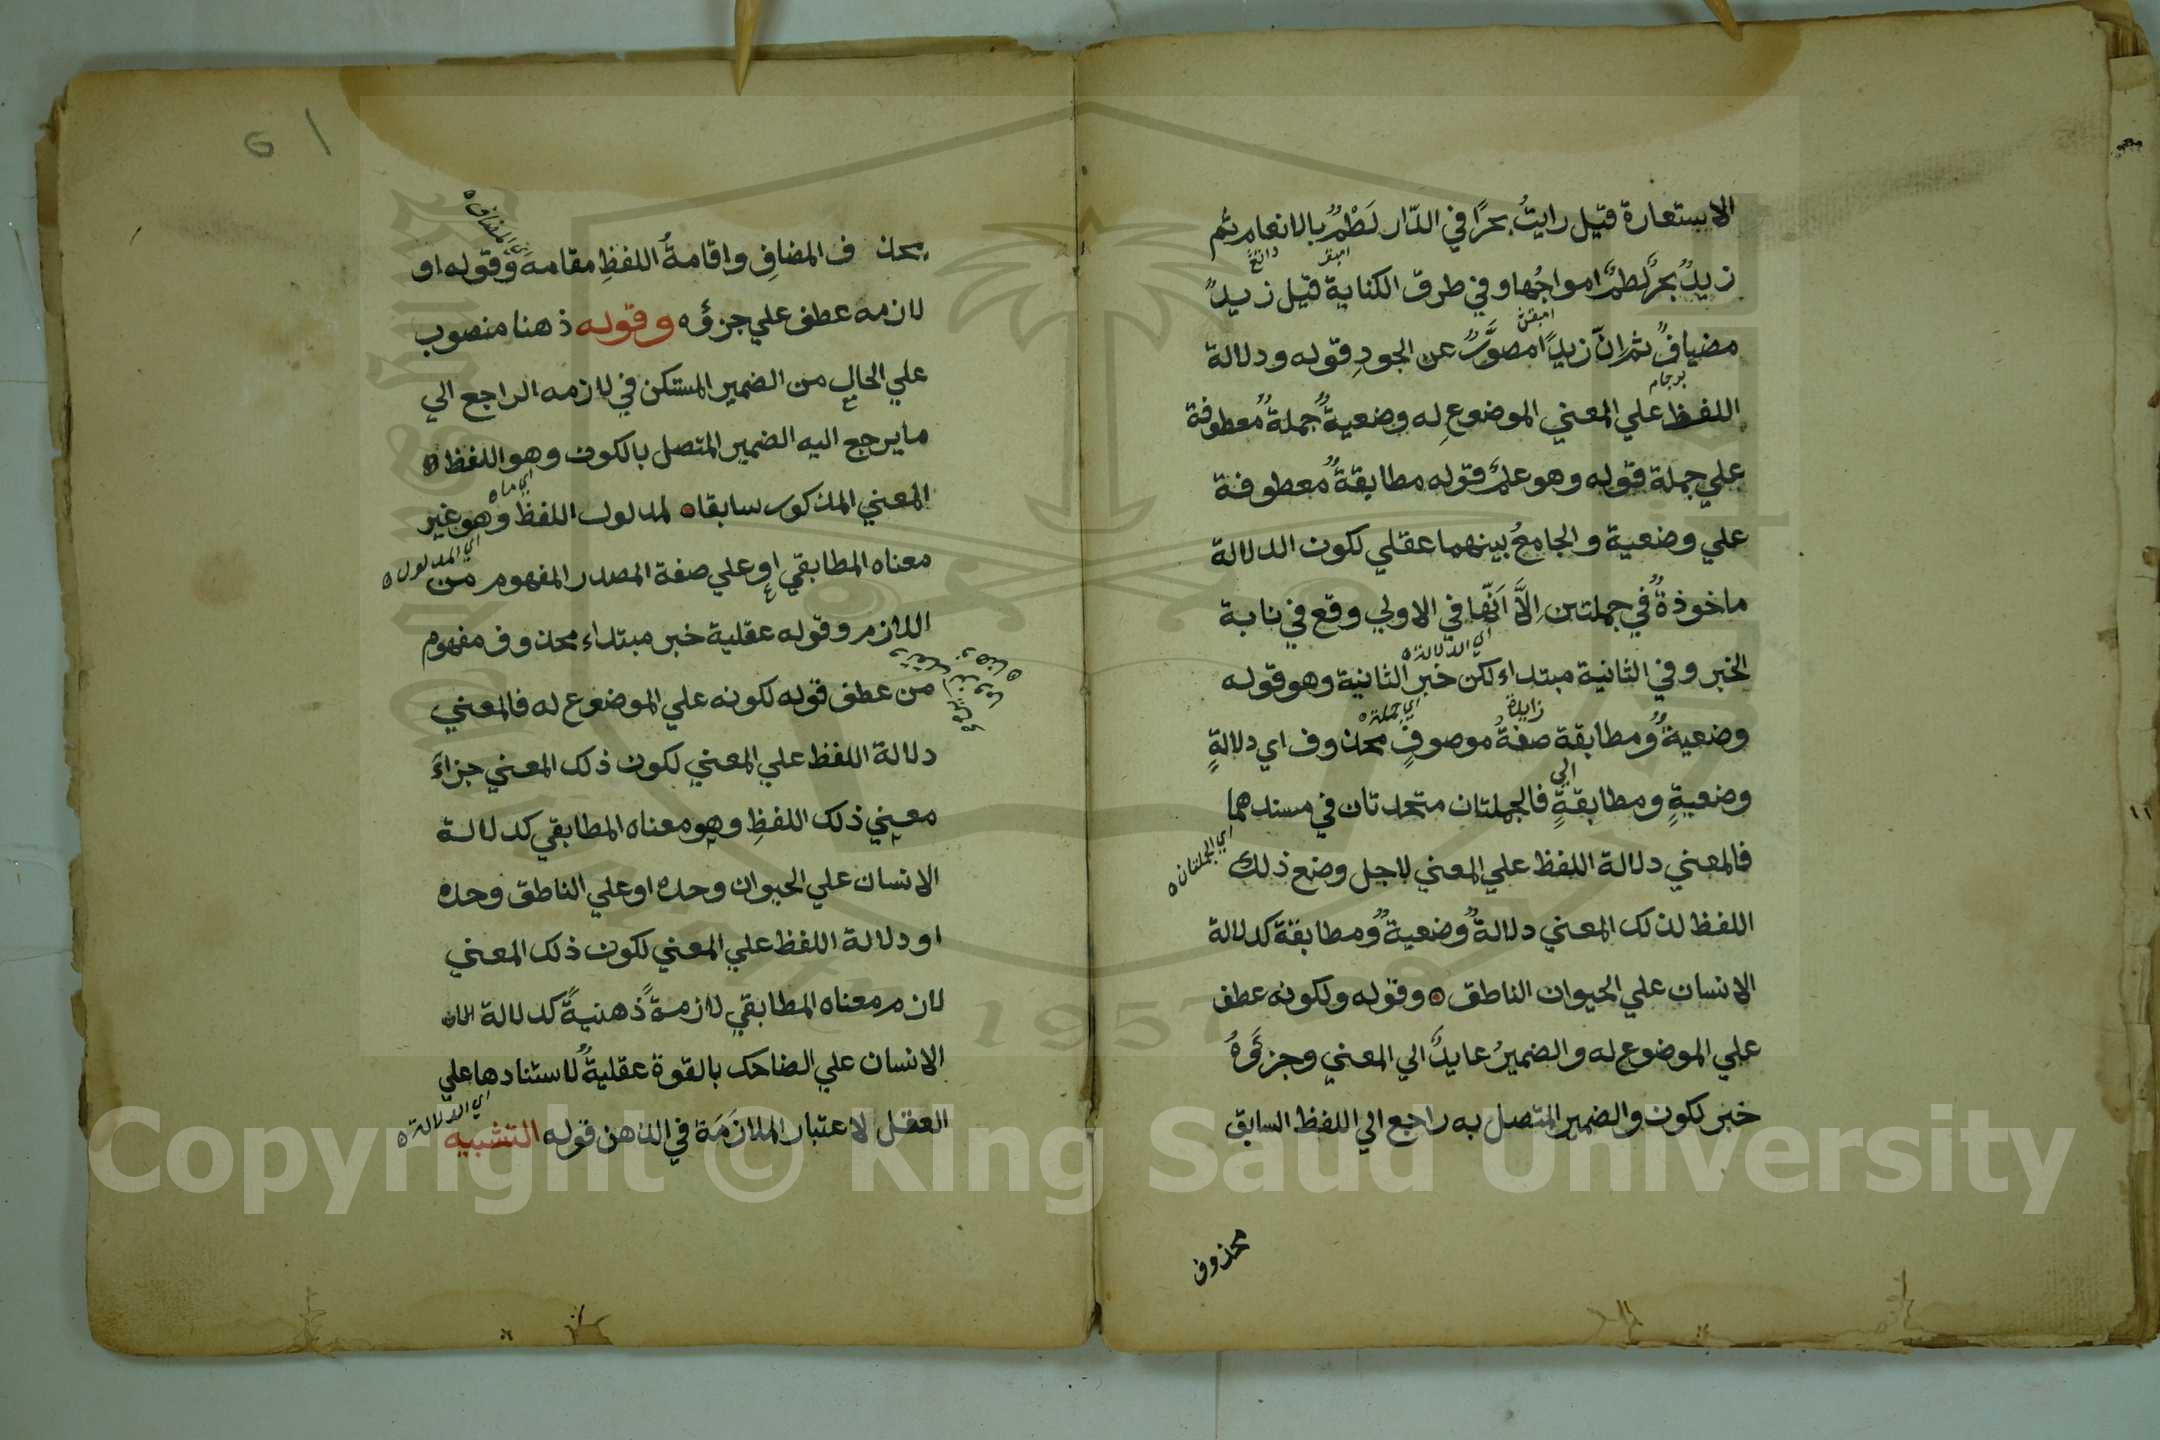 الاستعارة قيل رايتُ بحرًا في الدّار لَطْمُ بالانعام ثم
زيدٌ بحرٌ لطمَ امواجُها وفي طرق الكناية قيل زيدٌ
مضيافٌ ثم انّ زيدًا مصوَّرٌ عن الجودِ قوله ودلالة
اللفظ علي المعني الموضوعِ له وضعيةٌ جملةٌ معطوفة
علي جملة قوله وهو علم قوله مطابقةٌ معطوفة
علي وضعية والجامعُ بينهما عقلي لكون الدلالة
ماخوذةٌ في جملتين اِلَّا اَنّها في الاولي وقع في نابة
اي الدلالة
الخبر وفي الثانية مبتداء لكن خبر الثانية وهو قوله
زايدة
اي جملة
وضعيةٌ ومطابقة صفةُ موصوفٍ محذوف اي دلالةٍ
وضعيةٍ ومطابقةٍ فالجملتان متحدتان في مسندهما
اي الجملتان
فالمعني دلالة اللفظ علي المعني لاجل وضع ذلك
اللفظ لذلك المعني دلالةٌ وضعيةٌ ومطابقة كدلالة
الانسان علي الحيوان الناطق وقوله ولكونه عطف
علي الموضوع له والضميرُ عايدٌ الي المعني وجزءَوهُ
خبر لكون والضمير المتصل به راجع الي اللفظ السابق
محذوف
اي المضاف
بحذف المضافِ واِقامةُ اللفظِ مقامه وقوله او
لازمه عطف علي جزؤه وقوله ذهنا منصوب
علي الحال من الضمير المستكن في لازمه الراجع الي
ما يرجع اليه الضمير المتصل بالكون وهو اللفظ
اي ما
المعني المذكور سابقا لمدلول اللفظ وهو غير
اي المدلول
معناه المطابقي او علي صفة المصدر المفهوم من
اللازم وقوله عقلية خبر مبتداء محذوف مفهوم
من عطف قوله لكونه علي الموضوع له فالمعني
دلالة اللفظ علي المعني لكون ذلك المعني جزاءَ
معني ذلك اللفظِ وهو معناه المطابقي كدلالة
الانسان علي الحيوان وحده او علي الناطق وحده
او دلالة اللفظ علي المعني لكون ذلك المعني
لازم معناه المطابقي لازمةً ذهنيةً كدلالة
الانسان علي الضاحك بالقوة عقليةٌ لاستنادها علي
اي الدلالة
العقل لاعتبار الملازَمَة في الذهن قوله التشبيه
1957
Copyright © King Saud University